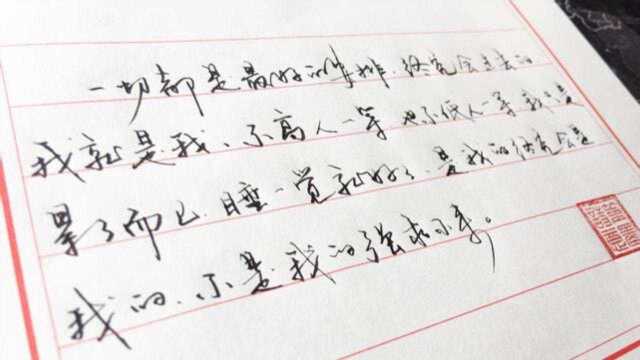 一切都是最好的安排.终究会过去的
我就是我、不高人一等也不低人一等 我只是
累了而已.睡一觉就好了.是我的终究会是
我的.不是我的强求不来。